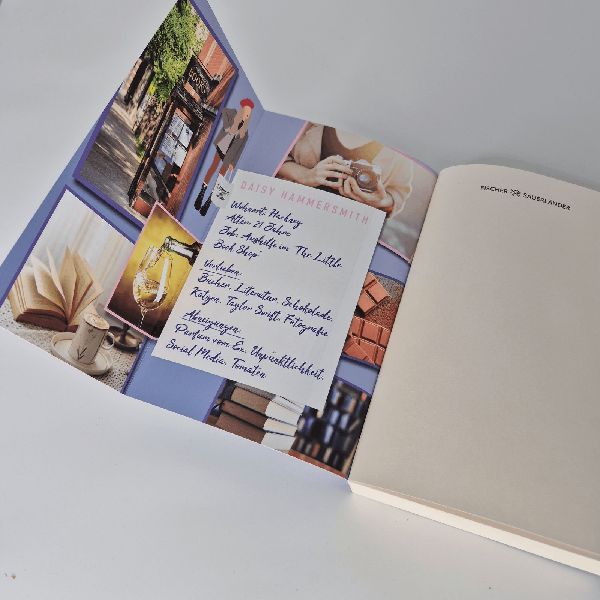 DAISY HAMMERSMITH
Wohnort: Hackney
Alter: 21 Jahre
Job: Aushilfe im "The Little
Book Shop"
Vorlieben:
Bücher, Literatur, Schokolade,
Katzen, Taylor Swift, Fotografie
Abneigungen:
Parfüm vom Ex, Unpünktlichkeit,
Social Media, Tomaten
FISCHER SAUERLÄNDER